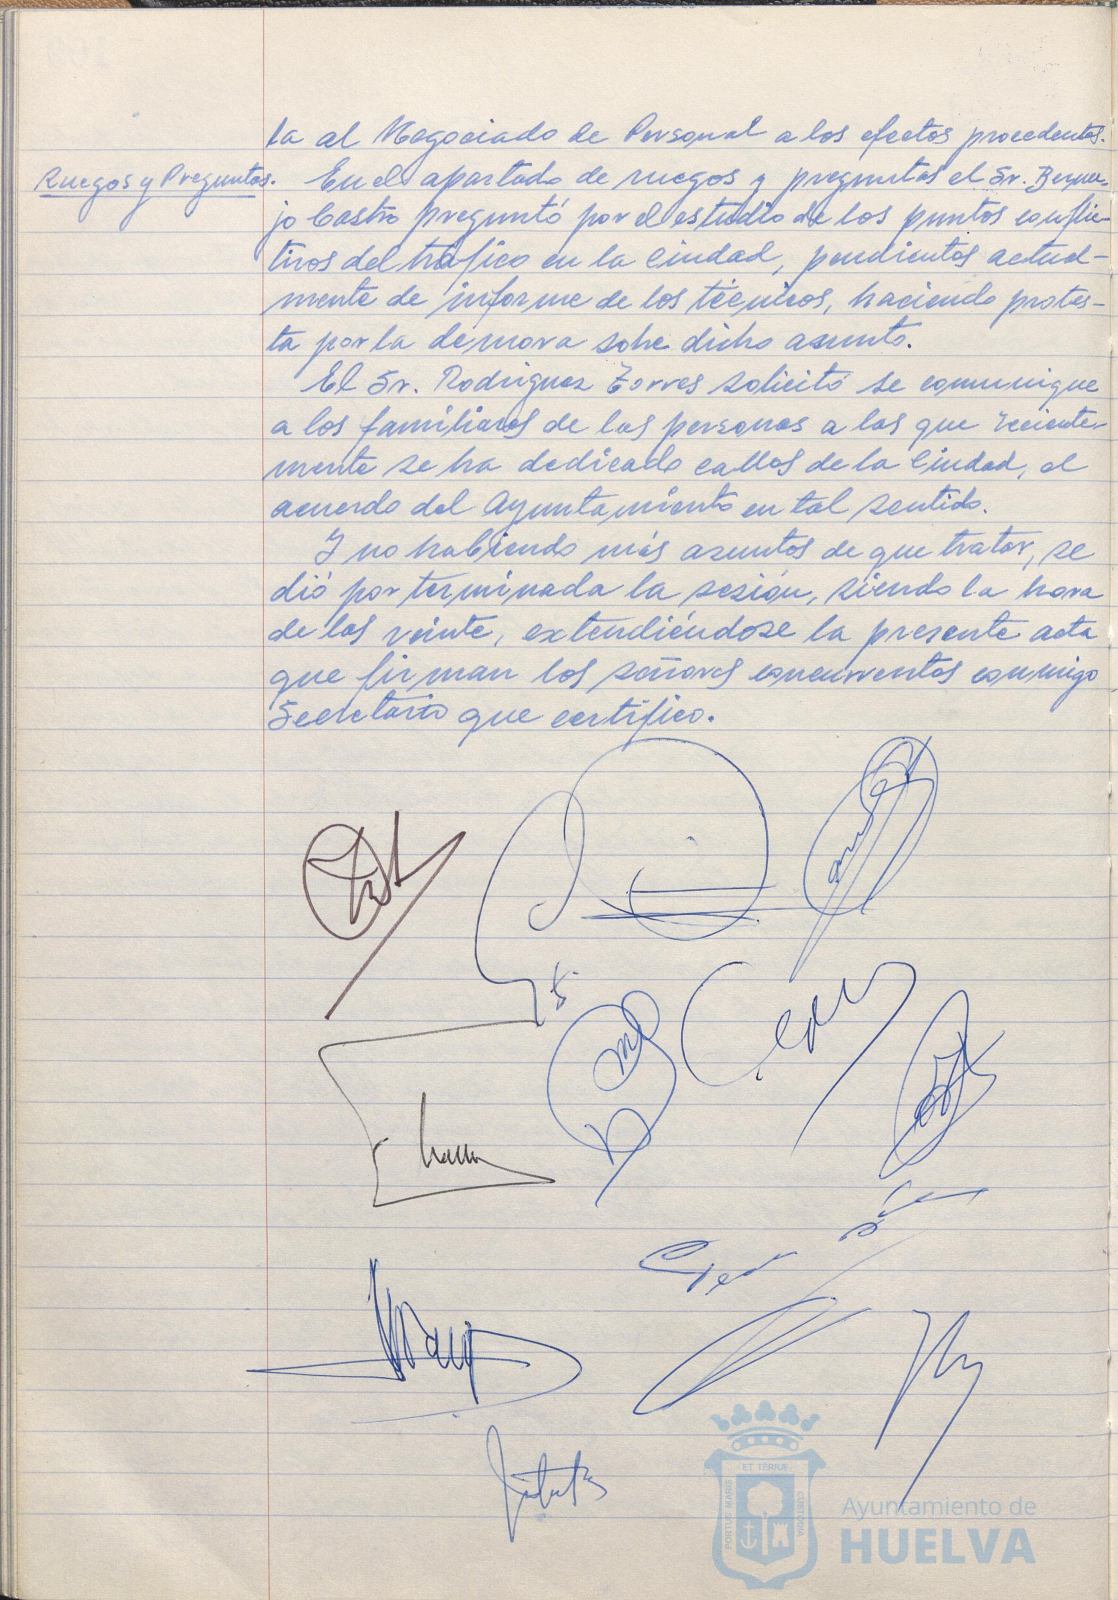 ta al Negociado de Personal a los efectos procedentes.
Ruegos y Preguntas.
En el apartado de ruegos y preguntas el Sr. Bermejo
Castro preguntó por el estudio de los puntos conflic-
tivos del tráfico en la Ciudad, pendientes actual-
mente de informe de los técnicos, haciendo protes-
ta por la demora sobre dicho asunto.
El Sr. Rodriguez Torres solicitó se comunique
a los familiares de las personas a las que reciente-
mente se ha dedicado calles de la Ciudad, el
acuerdo del Ayuntamiento en tal sentido.
Y no habiendo más asuntos de que tratar, se
dió por terminada la sesión, siendo la hora
de las veinte, extendiéndose la presente acta
que firman los señores concurrentes conmigo
Secretario que certifico.
ET TERRAE
PORTUS MARIS
CUSTODIA
Ayuntamiento de
HUELVA